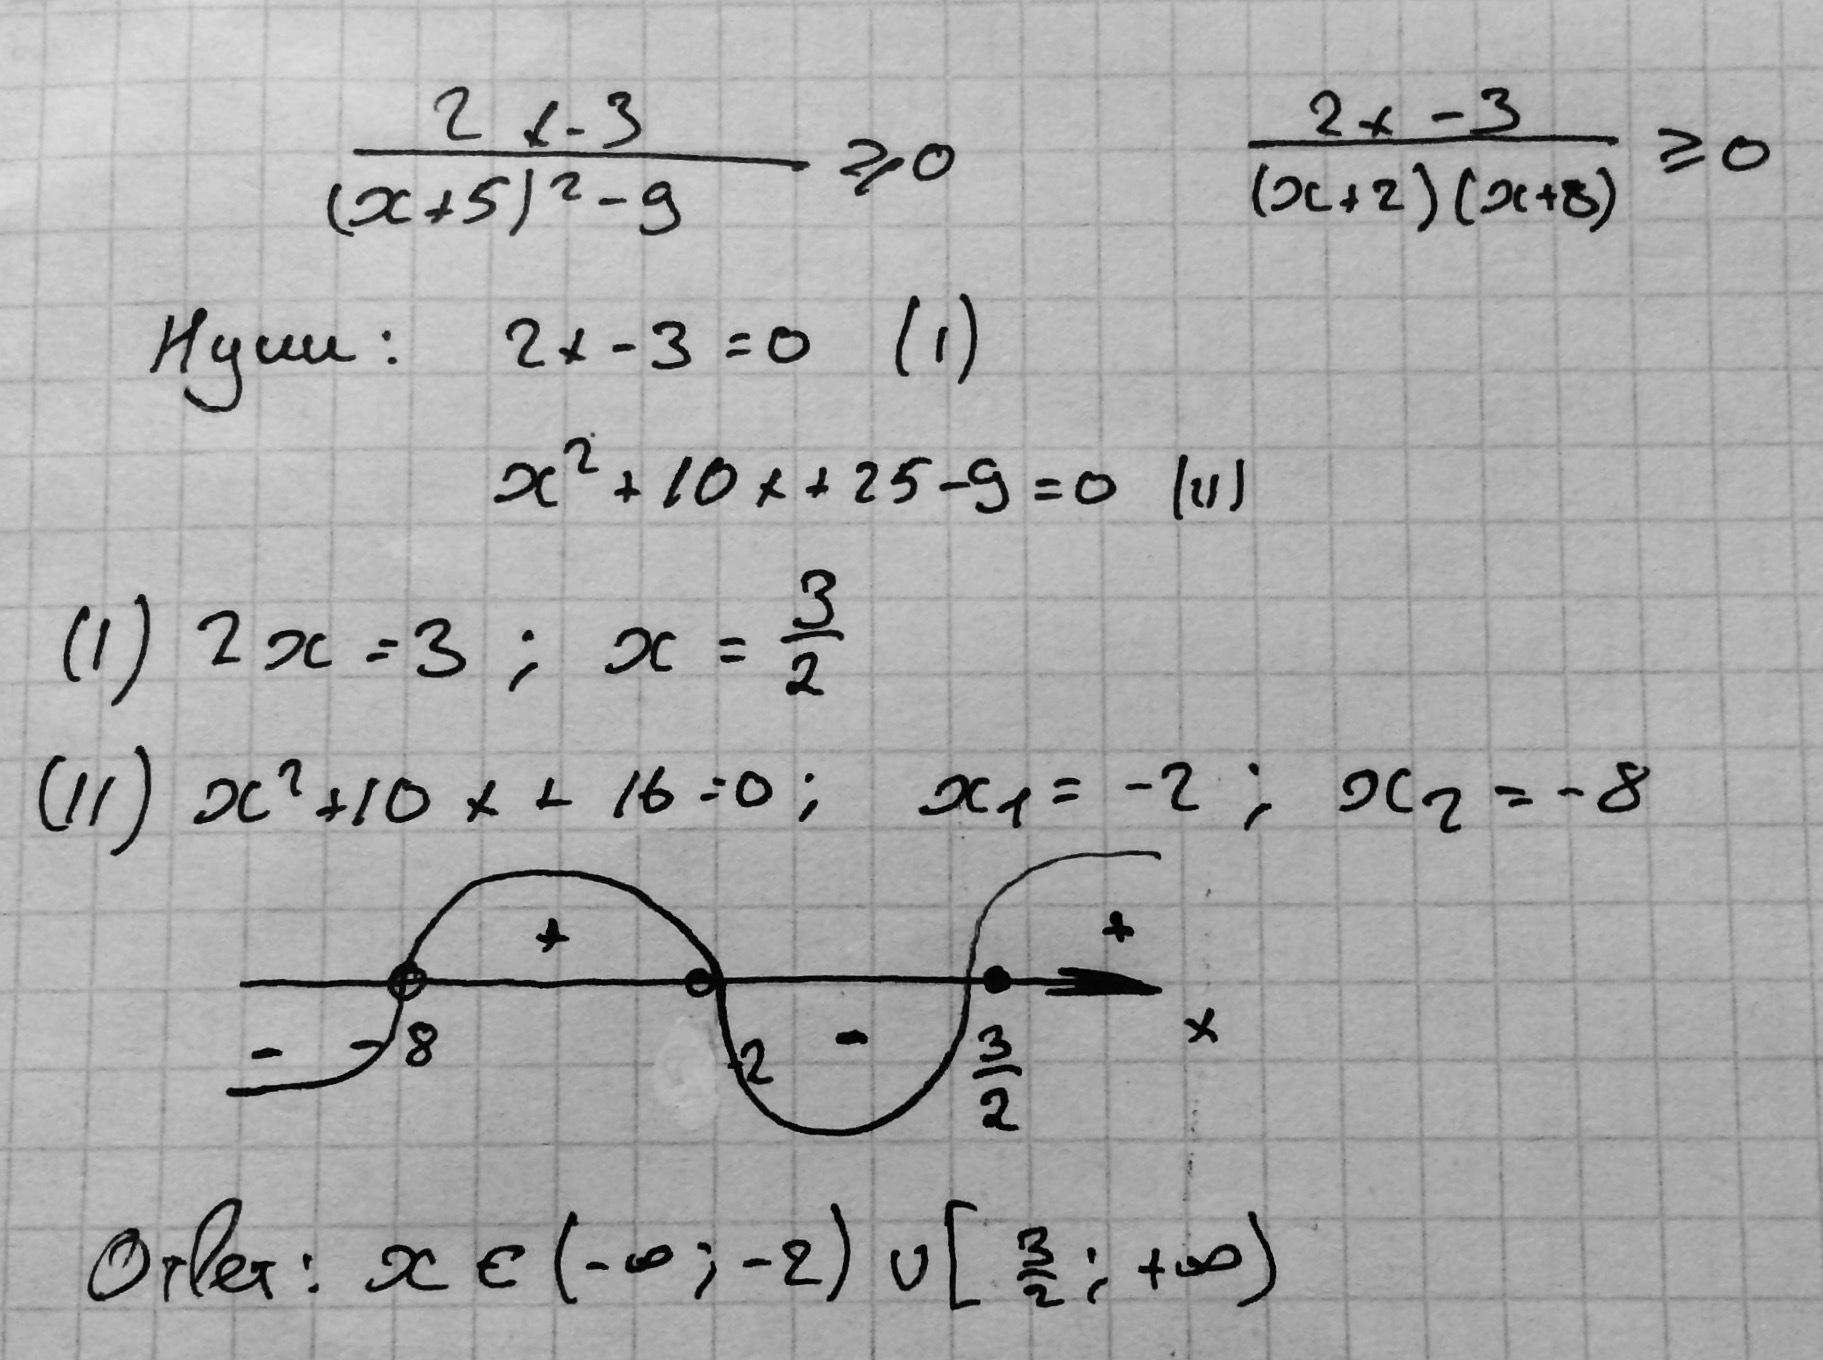 (2x-3)/((x+5)²-9) ≥0 (2x-3)/((x+2)(x+8)) ≥0
Нули: 2x-3=0 (I)
x²+10x+25-9=0 (II)
(I) 2x=3; x=3/2
(II) x²+10x+16=0; x₁=-2; x₂=-8
+ +
- -8 -2 - 3/2 x
Ответ: x∈(-∞;-2)∪[3/2;+∞)